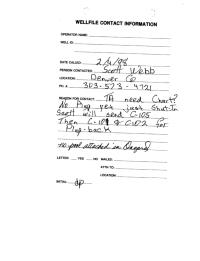 WELLFILE CONTACT INFORMATION
OPERATOR NAME:
WELL ID:
DATE CALLED: 2/4/98
PERSON CONTACTED: Scott Webb
LOCATION: Denver Co
PH. #: 303-573-4721
REASON FOR CONTACT: TA need Chart?
No Plug yes just Shut-In
Scott will send C-105
Then C-101 & C-102 for
Plug-back
no pool attached in Ongard
LETTER: YES NO MAILED:
ATTN TO:
LOCATION:
INITIAL: